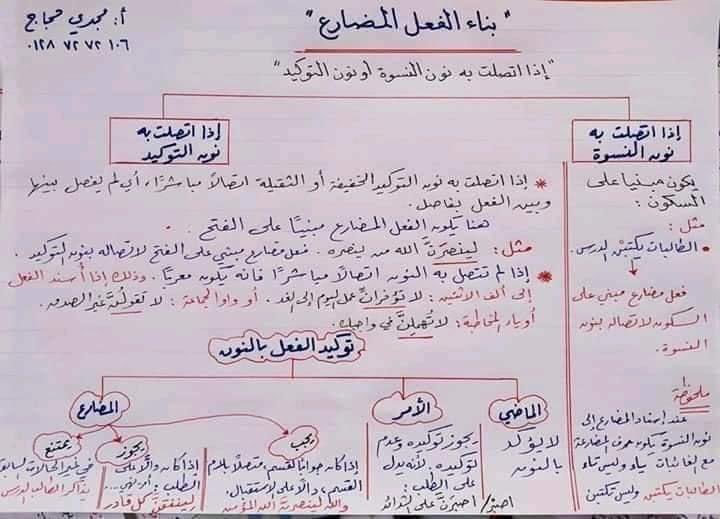 أ: مجدي حجاج
٠١٢٨ ٧٢ ٧٢ ١٠٦
"بناء الفعل المضارع"
"إذا اتصلت به نون النسوة أو نون التوكيد"
إذا اتصلت به
نون النسوة
يكون مبنيا على
السكون:
مثل:
الطالبات يكتبْن الدرس.
فعل مضارع مبني على
السكون لاتصاله بنون
النسوة.
ملحوظة
عند إسناد المضارع إلى
نون النسوة يكون حرف المضارعة
مع الغائبات ياء وليس تاء
الطالبات يكتبن وليس تكتبن
إذا اتصلت به
نون التوكيد
* إذا اتصلت به نون التوكيد الخفيفة أو الثقيلة اتصالًا مباشرًا، أي لم يفصل بينها
وبين الفعل بفاصل.
هنا يكون الفعل المضارع مبنيًا على الفتح.
مثل: لينصرنَّ الله من ينصره. فعل مضارع مبني على الفتح لاتصاله بنون التوكيد.
* إذا لم تتصل به النون اتصالًا مباشرًا فانه يكون معربًا. وذلك إذا أسند الفعل
إلى ألف الاثنين: لا تؤخرانِّ عمل اليوم إلى الغد. أو واو الجماعة: لا تقولُنَّ غير الصدق.
أو ياء المخاطبة: لا تهملِنَّ في واجبك.
توكيد الفعل بالنون
الماضي
لا يؤكد
بالنون
الأمر
يجوز توكيده وعدم
توكيده. لأنه يدل
على الطلب:
اصبر/ اصبرنَّ على الشدائد
المضارع
يجب
إذا كان جوابا لقسم، متصلًا بلام
القسم، دالًا على الاستقبال.
والله لينصرنَّ الله المؤمن
يجوز
إذا كان دالًا على
الطلب: أو نفي...
لينفقنَّ كل قادر
يمتنع
في غير الحالات السابقة
يذاكر الطالب الدرس